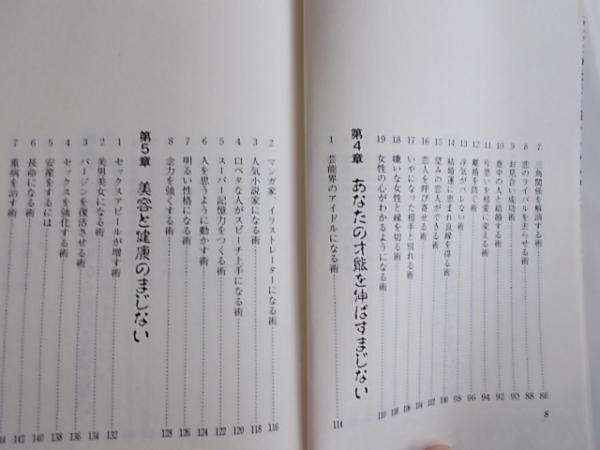 7 三角関係を解消する術……86
8 恋のライバルを去らせる術……88
9 お見合い成功術……90
10 意中の人と結婚する術……92
11 片思いを相愛に変える術……94
12 離婚を防ぐ術……96
13 浮気がバレない術……98
14 結婚運に恵まれ良縁を得る術……98
15 望みの恋人ができる術……100
16 恋人を呼び寄せる術……102
17 いやになった相手と別れる術……104
18 嫌いな女性と縁を切る術……108
19 女性の心がわかるようになる術……110
第4章 あなたの才能を伸ばすまじない
1 芸能界のアイドルになる術……114
8
2 マンガ家、イラストレーターになる術……116
3 人気小説家になる術……118
4 口ベタな人がスピーチ上手になる術……120
5 スーパー記憶力をつくる術……122
6 人を思うように動かす術……124
7 明るい性格になる術……126
8 念力を強くする術……128
第5章 美容と健康のまじない
1 セックスアピールが増す術……132
2 美男美女になる術……134
3 バージンを復活させる術……136
4 セックスを強化する術……138
5 安産をするには……140
6 長命になる術……142
7 重病を治す術